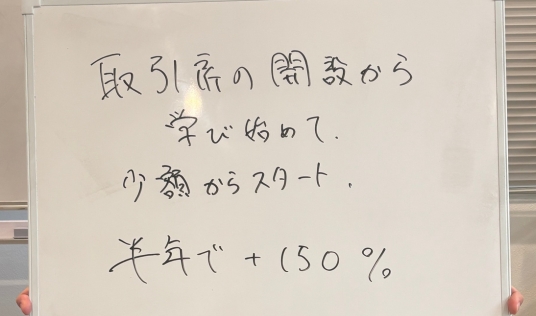 取引所の開設から
学び始めて.
少額からスタート.
半年で+150%